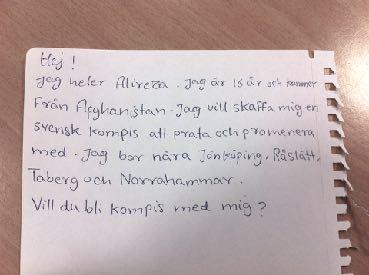 Hej!
Jag heter Alireza. Jag är 16 år och kommer
Från Afghanistan. Jag vill skaffa mig en
svensk kompis att prata och promenera
med. Jag bor nära Jönköping, Råslätt,
Taberg och Norrahammar.
Vill du bli kompis med mig?